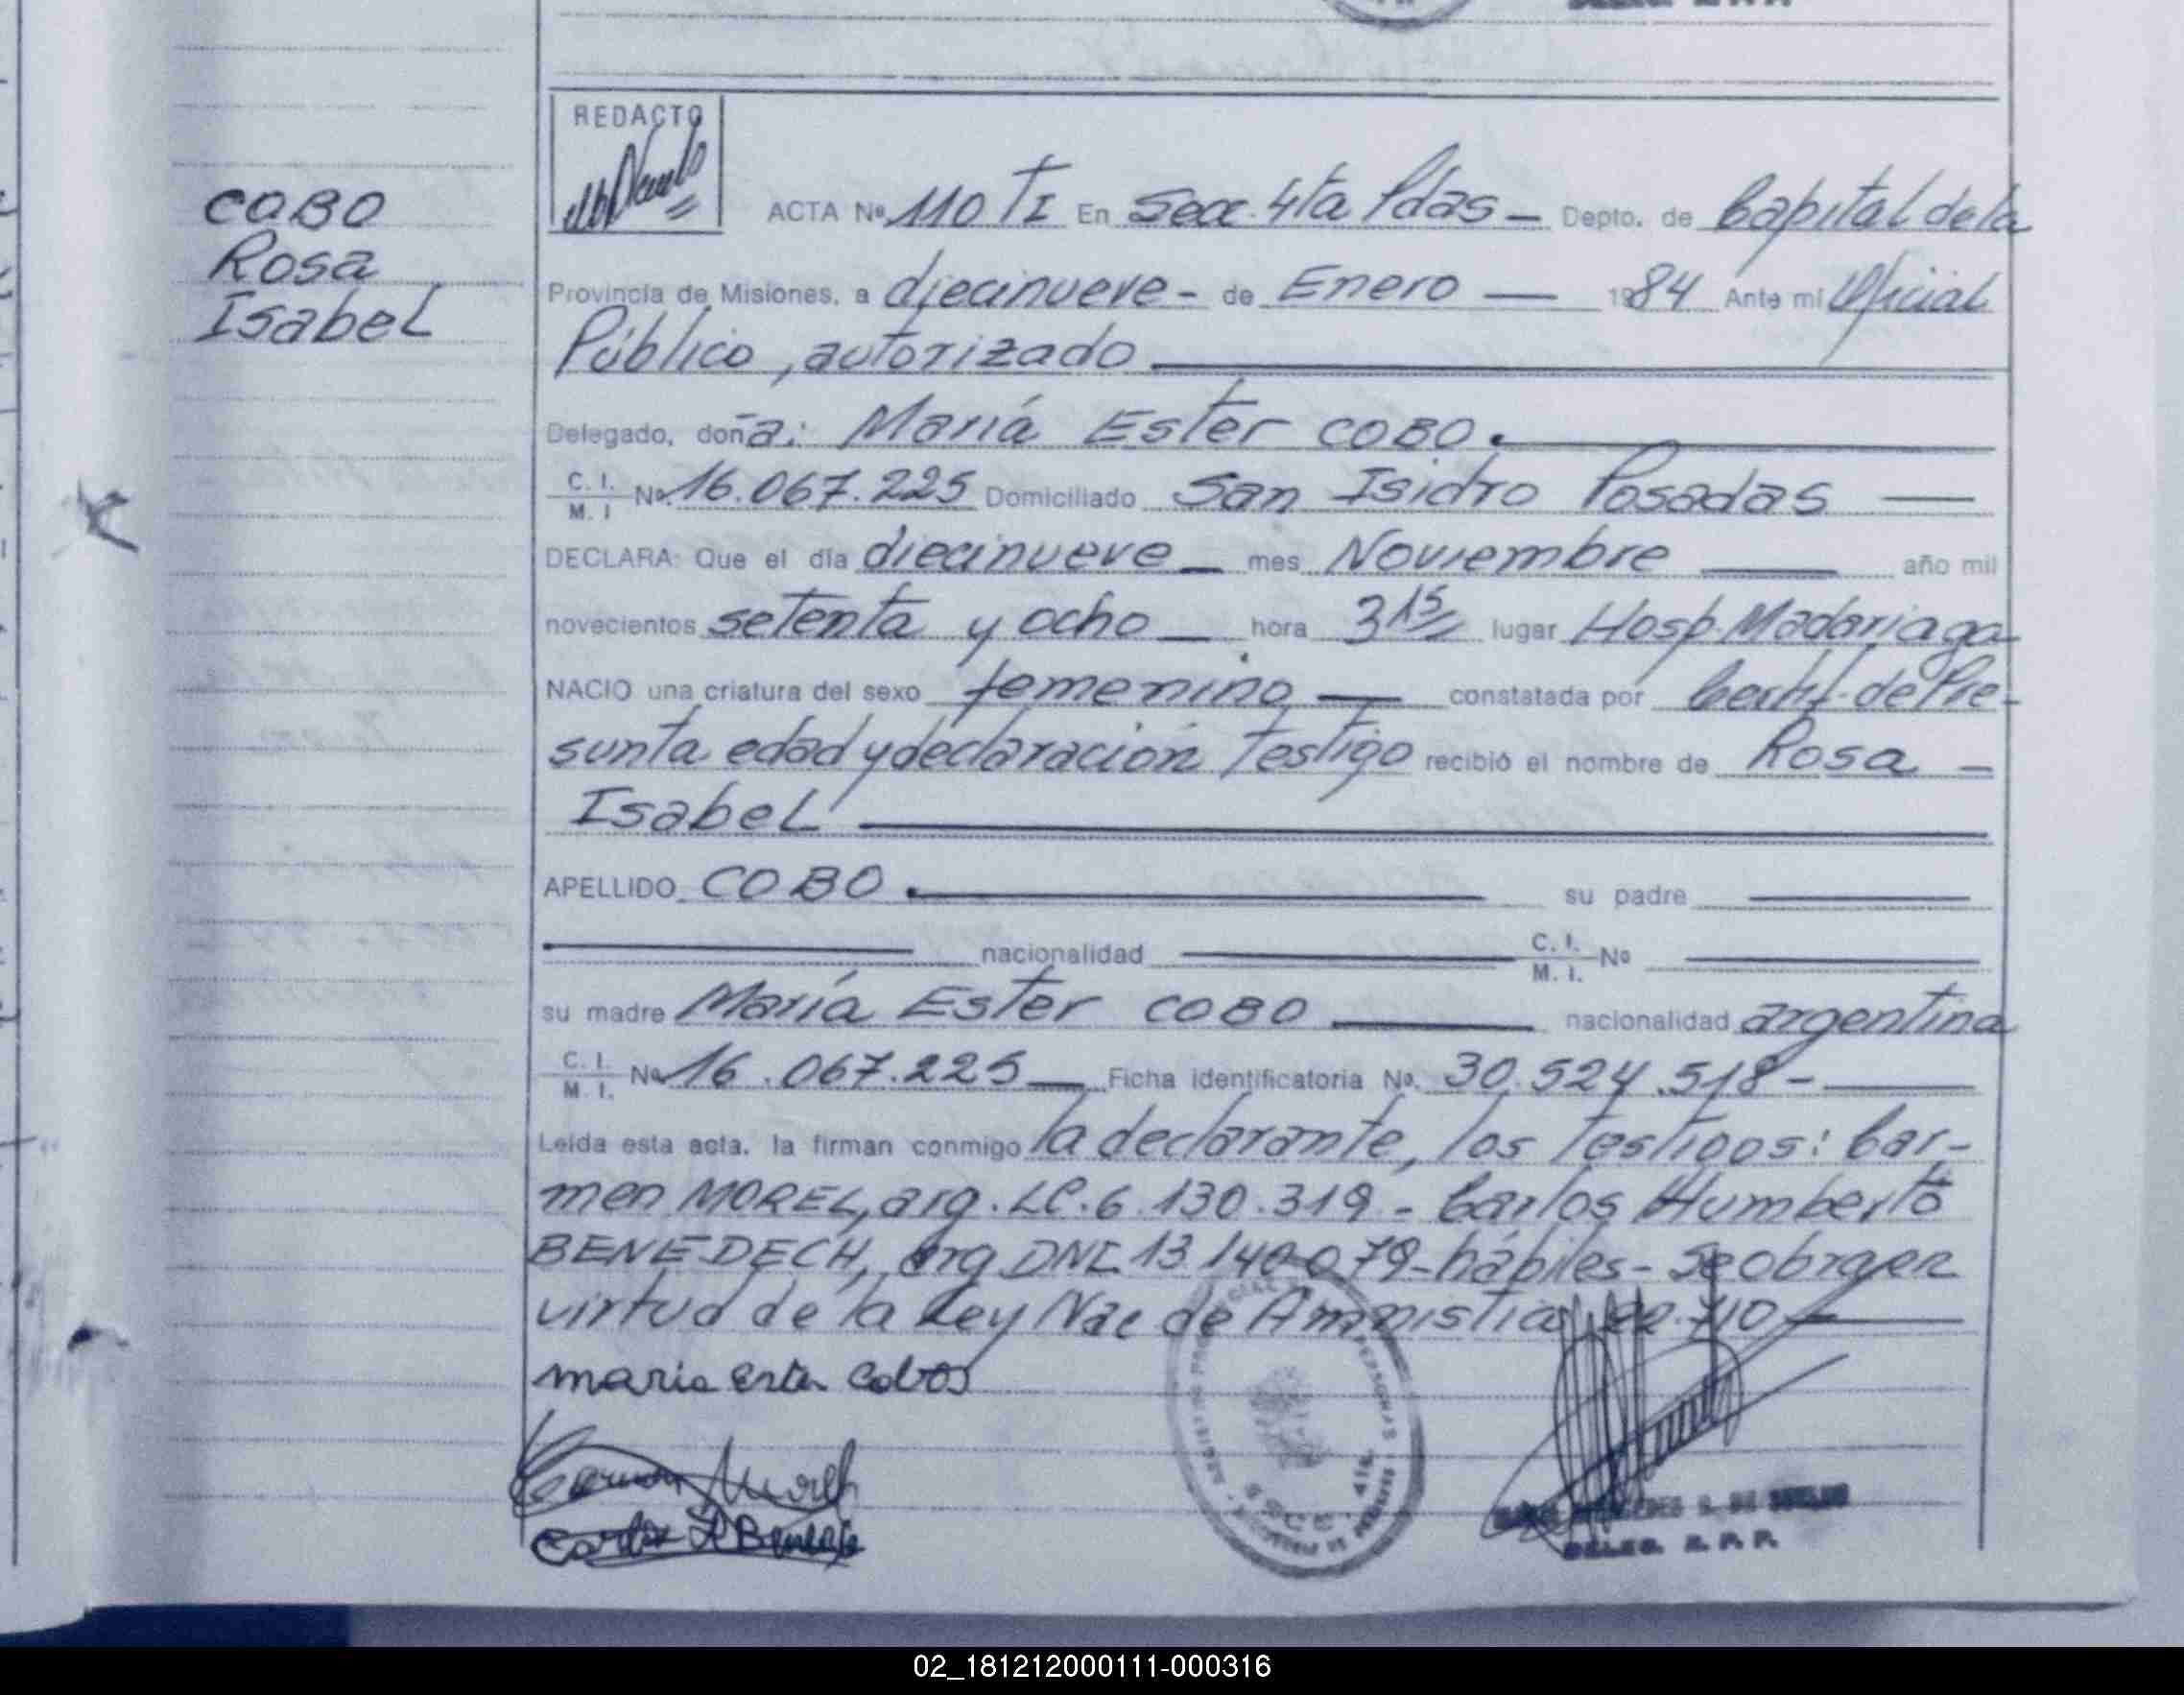 REDACTO
COBO
Rosa
Isabel
ACTA Nº 110 TI En Secc. 4ta Pdas - Depto. de Capital de la
Provincia de Misiones, a diecinueve - de Enero — 1984 Ante mi Oficial
Público, autorizado
Delegado, doña: María Ester COBO.
C. I. M. I Nº 16.067.225 Domiciliado San Isidro Posadas —
DECLARA: Que el día diecinueve — mes Noviembre — año mil
novecientos setenta y ocho — hora 3 15 lugar Hosp. Madariaga
NACIO una criatura del sexo femenino — constatada por Certif. de Pre-
sunta edad y declaración Testigo recibió el nombre de Rosa -
Isabel
APELLIDO COBO. su padre
nacionalidad C. I. M. I. Nº
su madre María Ester COBO — nacionalidad argentina
C. I. M. I. Nº 16.067.225 — Ficha identificatoria Nº. 30.524.518 -
Leída esta acta, la firman conmigo la declarante, los Testigos: Car-
men MOREL, arg. LC. 6.130.319 - Carlos Humberto
BENEDECH, arg DNI 13.140.079 - hábiles - Se obra en
virtud de la Ley Nac de Amnistia 22.710
maria ester cobos
DELEG. R. P. P.
02_181212000111-000316